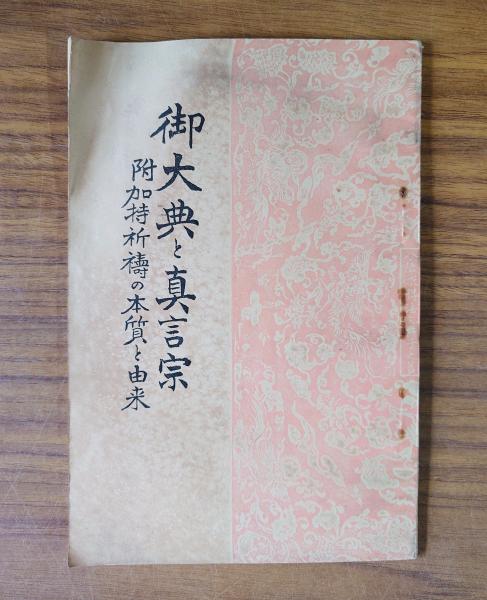 御大典と真言宗
附加持祈禱の本質と由来